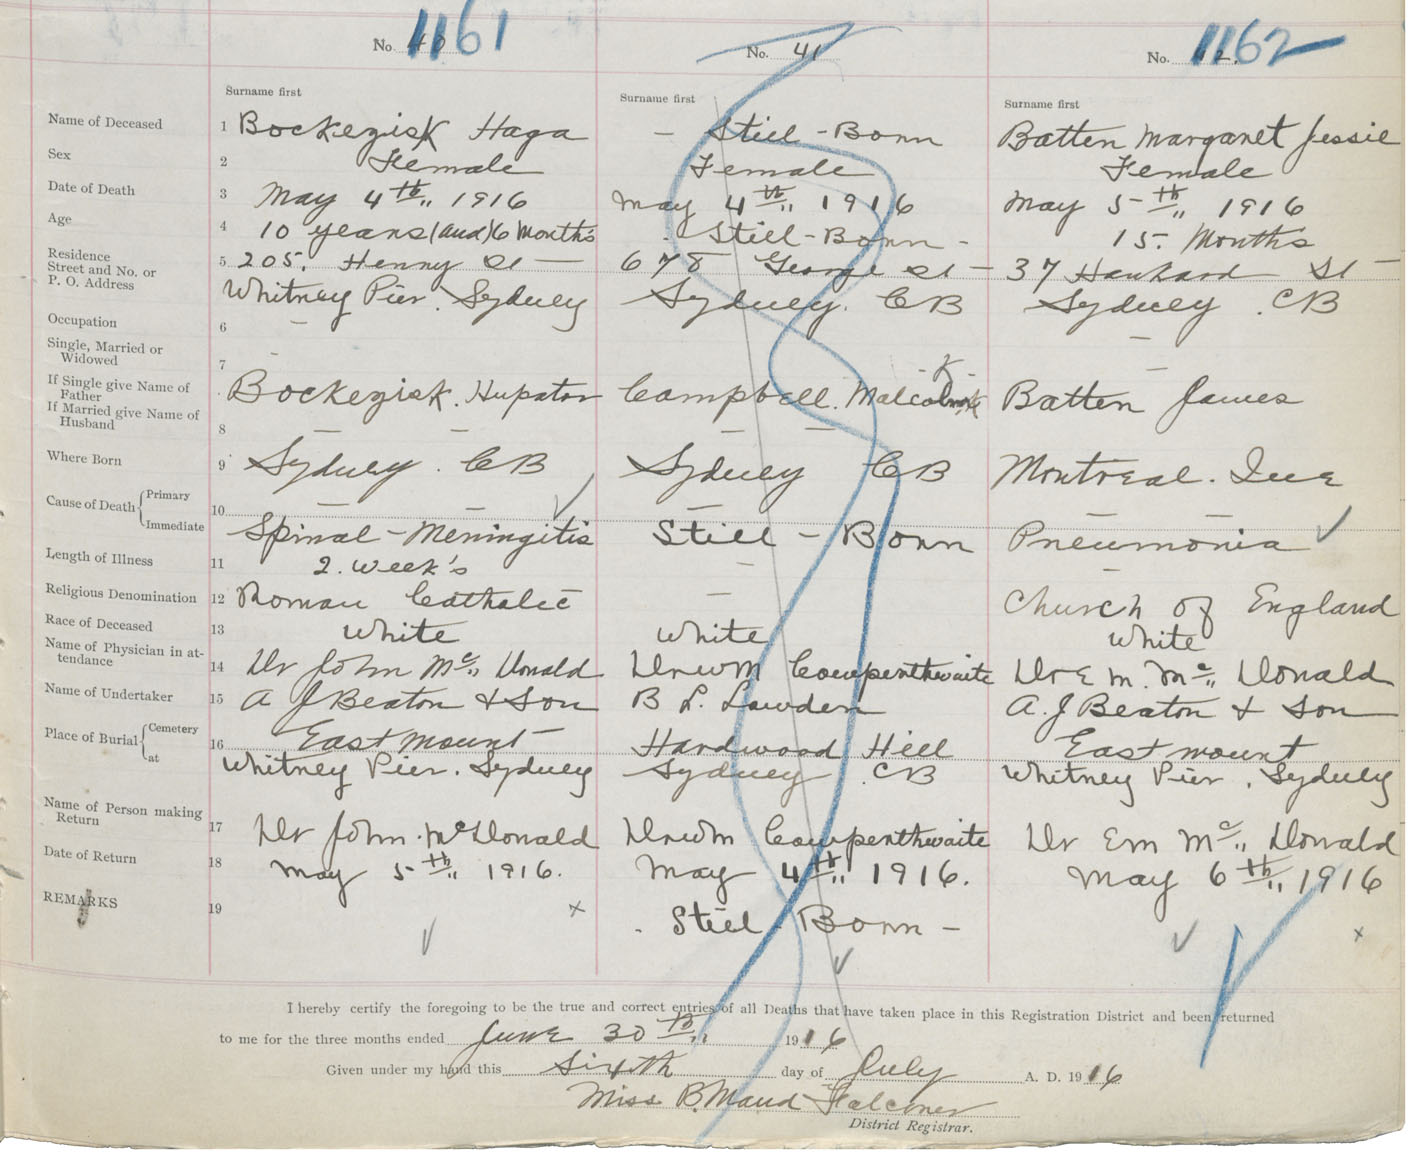 1161
No. 40
No. 41
1162
No. 42.
Surname first
Surname first
Surname first
Name of Deceased 1 Bockezisk Haga – Still-Born Batten Margaret Jessie
Sex 2 Female Female Female
Date of Death 3 May 4th 1916 May 4th 1916 May 5th 1916
Age 4 10 years (and) 6 Months Still-Born - 15. Months
Residence
Street and No. or
P. O. Address
5 205. Henry St – 678 George St – 37 Hankard St –
Whitney Pier. Sydney Sydney. CB Sydney. CB
Occupation 6 – –
Single, Married or
Widowed 7 –
If Single give Name of
Father
Bockezisk. Hupator Campbell. Malcolm K Batten James
If Married give Name of
Husband 8 – – – –
Where Born 9 Sydney. CB Sydney CB Montreal. Que
Cause of Death { Primary 10 – – – – –
Immediate Spinal-Meningitis Still-Born Pneumonia
Length of Illness 11 2. week's – –
Religious Denomination 12 Roman Catholic – Church of England
Race of Deceased 13 White White White
Name of Physician in at-
tendance 14 Dr John Mc Donald Dr Wm Cowpenthwaite Dr E M. Mc Donald
Name of Undertaker 15 A J Beaton & Son B L. Lawden A. J Beaton & Son
Place of Burial { Cemetery 16 East mount Hardwood Hill East mount
at Whitney Pier. Sydney Sydney. CB Whitney Pier. Sydney
Name of Person making
Return 17 Dr John. McDonald Dr Wm Cowpenthwaite Dr Em Mc Donald
Date of Return 18 May 5th 1916. May 4th 1916. May 6th 1916
REMARKS 19 x . Still-Born – x
I hereby certify the foregoing to be the true and correct entries of all Deaths that have taken place in this Registration District and been returned
to me for the three months ended June 30th 1916
Given under my hand this Sixth day of July A. D. 1916
Miss B. Maud Falconer
District Registrar.